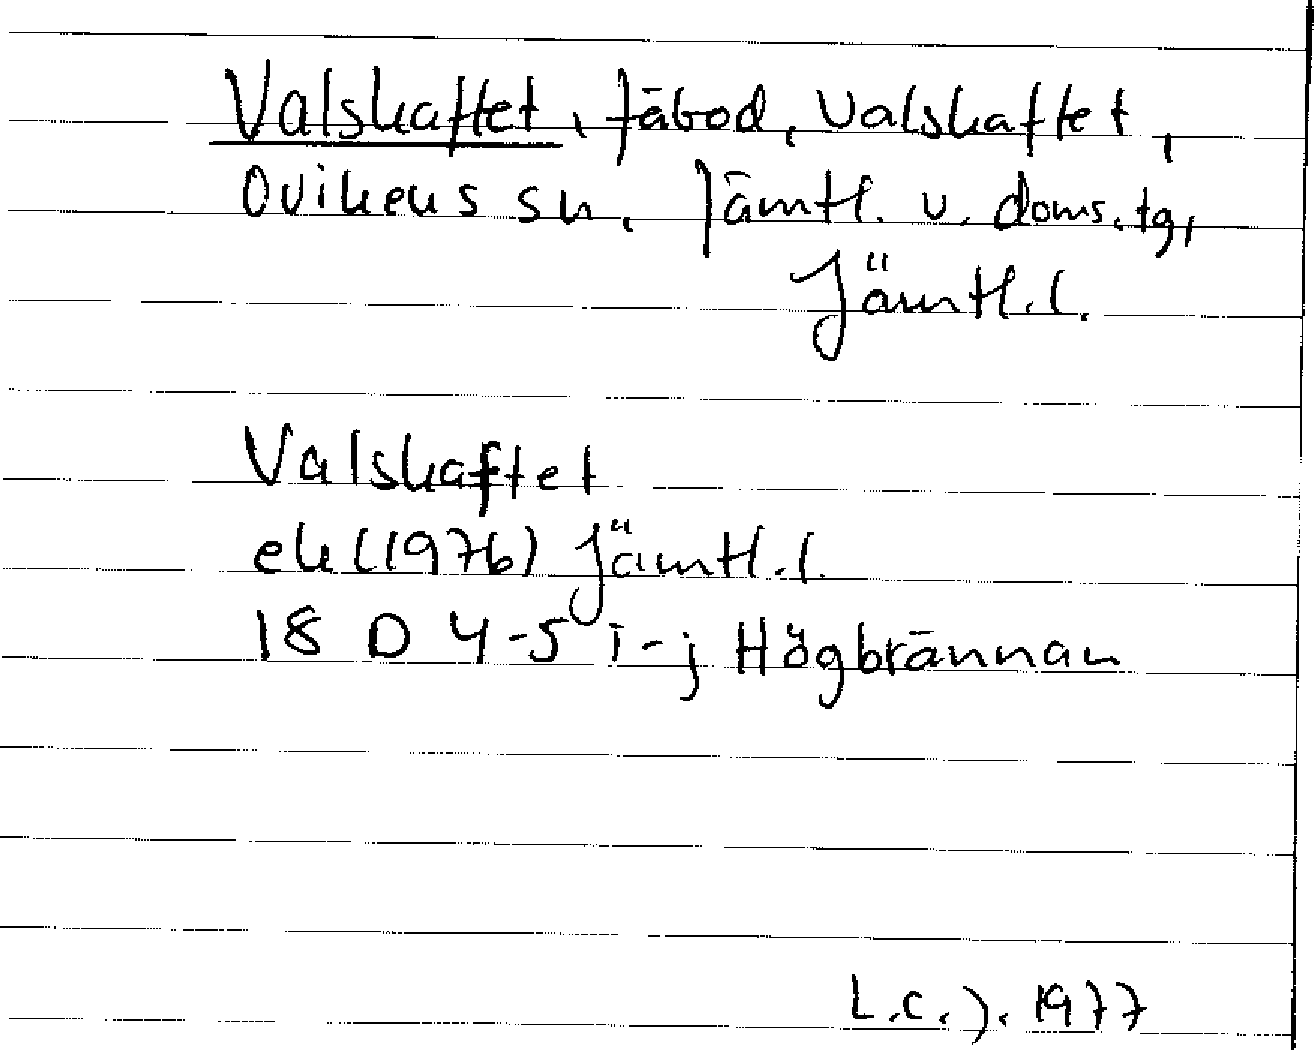 Valskaftet, fäbod, Valskaftet,
Ovikens sn, Jämtl. v. doms. tg,
Jämtl. l.
Valskaftet
ek (1976) Jämtl. l.
18 D 4-5 i-j Högbrännan
L.C.J. 1977